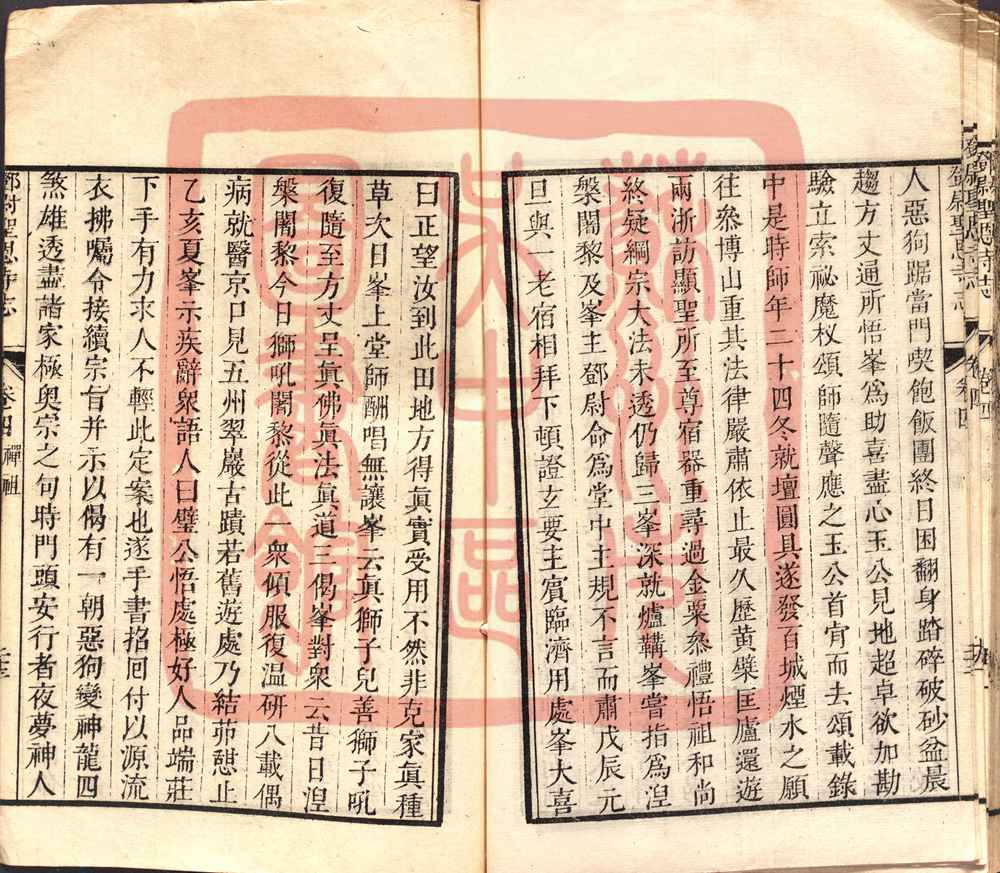 人惡狗踞當門喫飽飯團終日困翻身踏碎破砂盆晨
趨方丈通所悟峯爲助喜盡心玉公見地超卓欲加勘
驗立索祕魔杈頌師隨聲應之玉公首肯而去頌載錄
中是時師年二十四冬就壇圓具遂發百城煙水之願
往叅博山重其法律嚴肅依止最久歷黃檗匡廬還遊
兩浙訪顯聖所至尊宿器重尋過金粟叅禮悟祖和尚
終疑綱宗大法未透仍歸三峯深就爐鞲峯嘗指爲湼
槃闍黎及峯主鄧尉命爲堂中主規不言而肅戊辰元
旦與一老宿相拜下頓證玄要主賓臨濟用處峯大喜
曰正望汝到此田地方得眞實受用不然非克家眞種
草次日峯上堂師酬唱無讓峯云眞獅子兒善獅子吼
復隨至方丈呈眞佛眞法眞道三偈峯對衆云昔日湼
槃闍黎今日獅吼闍黎從此一衆傾服復溫研八載偶
病就醫京口見五州翠巖古蹟若舊遊處乃結茆憇止
乙亥夏峯示疾辭衆語人曰璧公悟處極好人品端莊
下手有力求人不輕此定案也遂手書招囘付以源流
衣拂囑令接續宗旨并示以偈有一朝惡狗變神龍四
煞雄透盡諸家極奥宗之句時門頭安行者夜夢神人
鄧尉聖恩寺志 卷四 禪祖
鄧尉聖恩寺志 卷四
蘇州吳中區圖書館